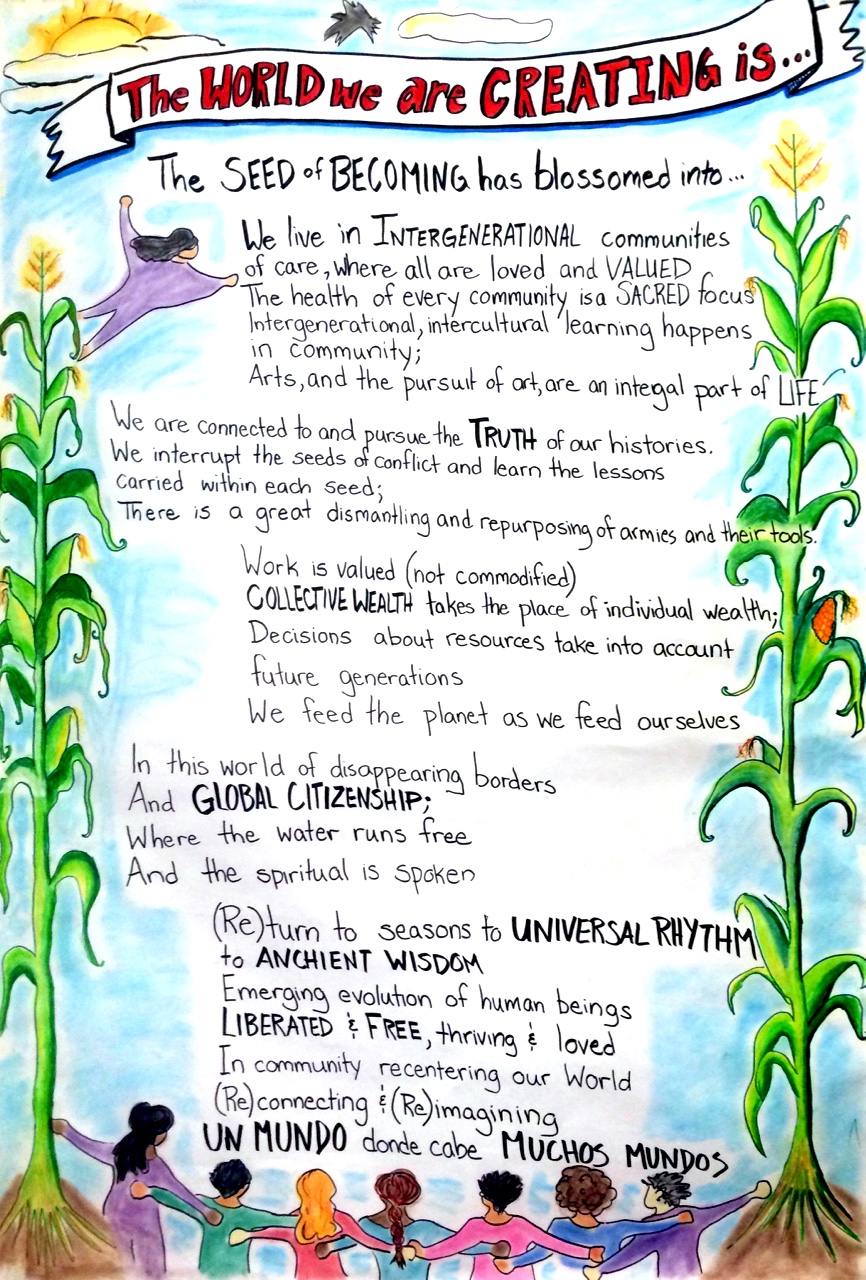 The WORLD we are CREATING is...
The SEED of BECOMING has blossomed into...
We live in INTERGENERATIONAL communities
of care, where all are loved and VALUED
The health of every community is a SACRED focus
Intergenerational, intercultural learning happens
in community;
Arts, and the pursuit of art, are an intergal part of LIFE
We are connected to and pursue the TRUTH of our histories.
We interrupt the seeds of conflict and learn the lessons
carried within each seed;
There is a great dismantling and repurposing of armies and their tools.
Work is valued (not commodified)
COLLECTIVE WEALTH takes the place of individual wealth;
Decisions about resources take into account
future generations
We feed the planet as we feed ourselves
In this world of disappearing borders
And GLOBAL CITIZENSHIP;
Where the water runs free
And the spiritual is spoken
(Re)turn to seasons to UNIVERSAL RHYTHM
to ANCHIENT WISDOM
Emerging evolution of human beings
LIBERATED & FREE, thriving & loved
In community recentering our World
(Re)connecting & (Re)imagining
UN MUNDO donde cabe MUCHOS MUNDOS